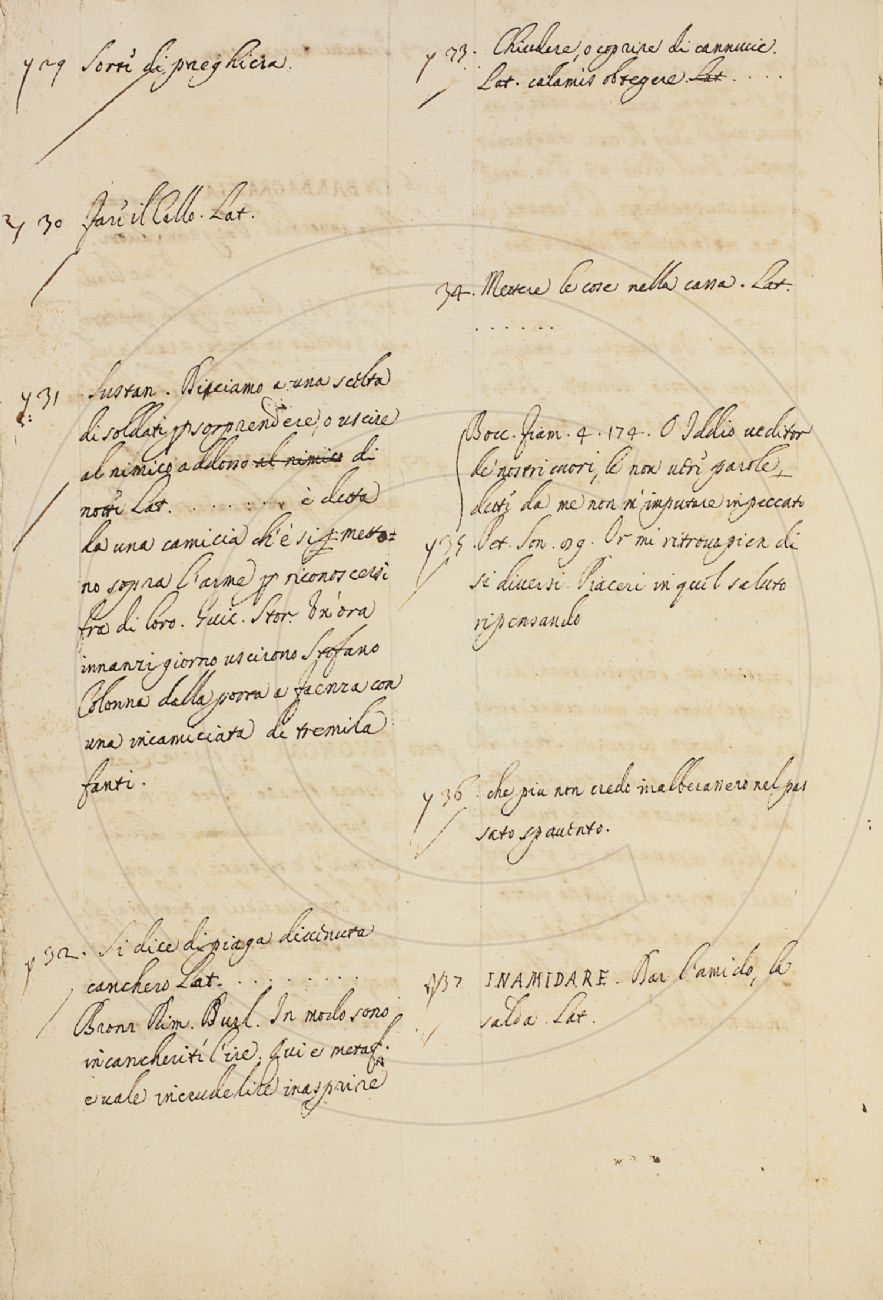 29 Sorte di preghiera.
30 Fare il Callo. Lat.
31 Sustan. Diciamo a una scelta
di soldati p sorprendere, o uscire
al nimico addosso al nimico di
notte Lat. . . . . . . . è detta
da una camicia ch'è si metto=
no sopra l'arme p riconoscersi
fra di loro. Guic. Stor. Un'ora
innanzi giorno uscirono Stefano
Colonna dalla porta a Faenza con
una incamiciata di tremila
fanti.
32. Si dice di piaga divenuta
canchero Lat. . . . . . . . .
Bronz Rim. Burl. In modo sono
incancherite l'ire. Qui e metaf.
e vale incrudelite inasprire
33. Chiudere, o coprire di cannucce.
Lat. calamis obtegere Lat . . . .
34. Mettere le cose nella cassa. Lat.
. . . . . .
Bocc. Fiam. 4. 174. O Iddio veditor
de nostri cuori, le non vere parole
dette da me non m'imputare in peccato
35. Pet. Son. 89. Or mi ritrovo pien di
si diversi Piaceri in quel saluto
ripensando
36. che piu non credo inalbecassero nel pas
sato spavento.
37 INAMIDARE. Dar l'amido, la
salda. Lat.